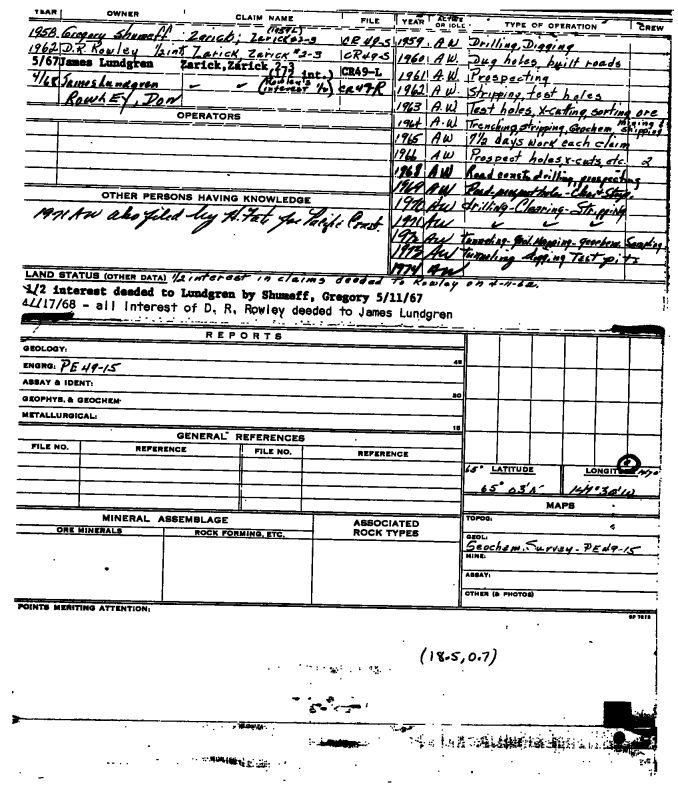 YEAR OWNER CLAIM NAME FILE YEAR ACTIVE OR IDLE TYPE OF OPERATION CREW
1958 Gregory Shumeff Zarick; Zarick #2-3 CR49-S
1962 D.R. Rowley 1/2 int Zarick, Zarick #2-3 CR49-S
5/67 James Lundgren Zarick, Zarick 2-3 (1/2 int.) CR49-L
4/68 James Lundgren (Rowley's interest 1/2) CR49-R
ROWLEY, DON
1959 AW Drilling, Digging
1960 AW Dug holes, built roads
1961 AW Prospecting
1962 AW Stripping, test holes
1963 AW Test holes, X-cutting, sorting ore
1964 AW Trenching, stripping, Geochem, Mining & shipping
1965 AW 7 1/2 days work each claim
1966 AW Prospect holes, x-cuts, etc. 2
1968 AW Road const. drilling, prospecting
1969 AW
1970 AW drilling-Clearing-Stripping
1971 AW " " "
1972 AW tunneling-Geol. Mapping-geochem. Sampling
1973 AW tunneling digging Test pits
1974 AW
OPERATORS
OTHER PERSONS HAVING KNOWLEDGE
1971 AW also filed by
LAND STATUS (OTHER DATA) 1/2 interest in claims deeded to Rowley on 4-11-62.
1/2 interest deeded to Lundgren by Shumeff, Gregory 5/11/67
17/68 - all interest of D. R. Rowley deeded to James Lundgren
REPORTS
GEOLOGY:
ENGRG: PE 49-15
ASSAY & IDENT:
GEOPHYS. & GEOCHEM:
METALLURGICAL:
45
30
15
GENERAL REFERENCES
FILE NO. REFERENCE FILE NO. REFERENCE
65° LATITUDE LONGITUDE 147°
65° 03'N 147° 30'W
MAPS
TOPOG:
GEOL:
Geochem. Survey-PE49-15
MINE:
ASSAY:
OTHER (& PHOTOS)
MINERAL ASSEMBLAGE ASSOCIATED ROCK TYPES
ORE MINERALS ROCK FORMING, ETC.
POINTS MERITING ATTENTION:
(18.5, 0.7)